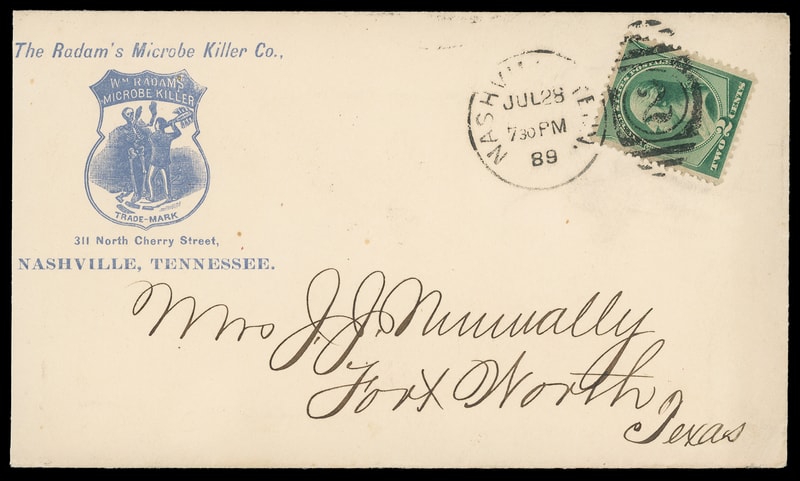 The Radam's Microbe Killer Co.,
WM RADAM'S
MICROBE KILLER
TRADE-MARK
311 North Cherry Street,
NASHVILLE, TENNESSEE.
NASHVILLE, TENN.
JUL 28
730 PM
89
2
TWO 2 CENTS
Mrs J. J. Nunnally
Fort Worth
Texas